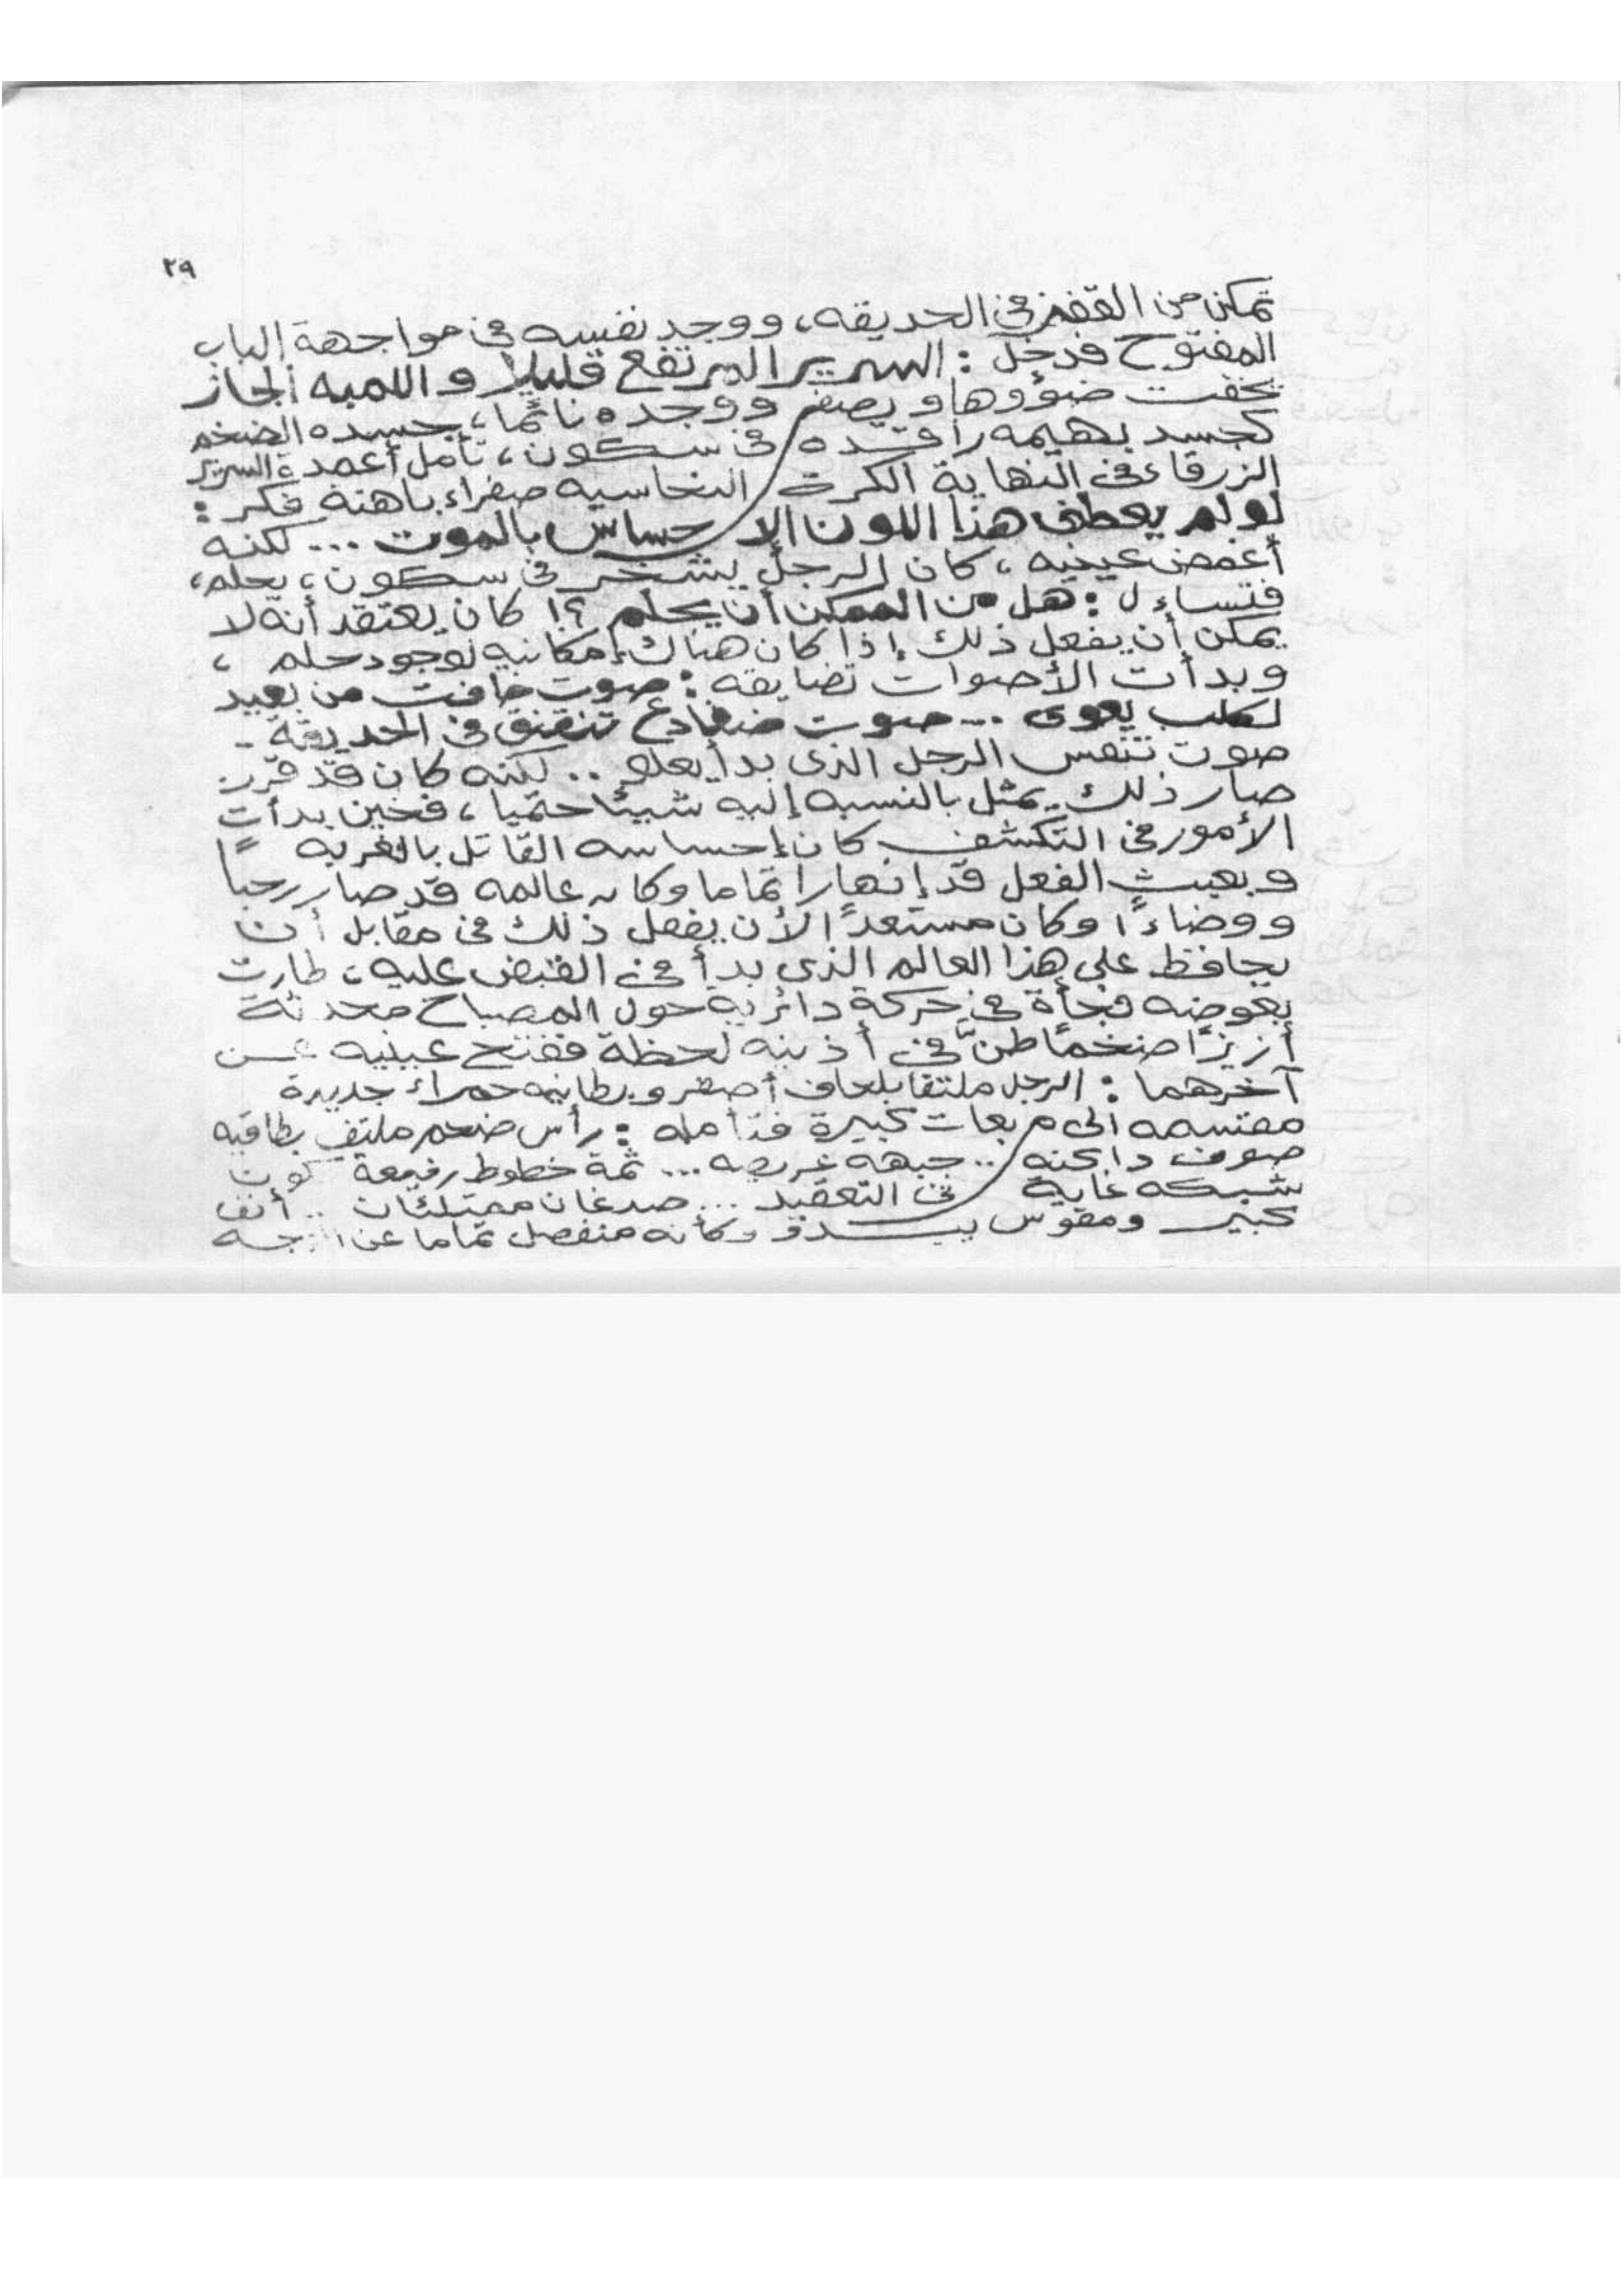 ٢٩
تمكن من القفز فى الحديقه، ووجد نفسه فى مواجهة الباب
المفتوح فدخل : السرير المرتفع قليلا و اللمبه الجاز
يخفت ضوؤها و يصفر ووجده نائما، جسده الضخم
كجسد بهيمه راقده فى سكون، تأمل أعمدة السرير
الزرقاء فى النهاية الكرة النحاسيه صفراء باهتة فكر :
لو لم يعطى هذا اللون الإحساس بالموت ... لكنه
أغمض عينيه، كان الرجل يشخر فى سكون، يحلم،
فتساءل : هل من الممكن أن يحلم ؟! كان يعتقد أنه لا
يمكن أن يفعل ذلك إذا كان هناك إمكانيه لوجود حلم ،
وبدأت الأصوات تضايقه : صوت خافت من بعيد
لكلب يعوى ... صوت ضفادع تنقنق فى الحديقة -
صوت تنفس الرجل الذى بدأ يعلو .. لكنه كان قد قرر
صار ذلك يمثل بالنسبه إليه شيئا حتميا ، فحين بدأت
الأمور فى التكشف كان إحساسه القاتل بالغربه
وبعبث الفعل قد إنهارا تماما وكان عالمه قد صار رحبًا
ووضاءًا وكان مستعدًا لأن يفعل ذلك فى مقابل أن
يحافظ على هذا العالم الذى بدأ فى القبض عليه، طارت
بعوضه فجأة فى حركة دائريه حول المصباح محدثة
أزيزًا ضخمًا طنَّ فى أذنيه لحظة ففتح عينيه عن
آخرهما : الرجل ملتفا بلحاف أصفر وبطانيه حمراء جديدة
مقتسمه الى مربعات كبيرة فتأمله : رأس ضخم ملتف بطاقيه
صوف داكنه .. جبهه عريضه ... ثمة خطوط رفيعة كونت
شبكه غاية فى التعقيد ... صدغان ممتلئان .. أنف
كبير ومقوس يبدو وكأنه منفصل تماما عن الوجه